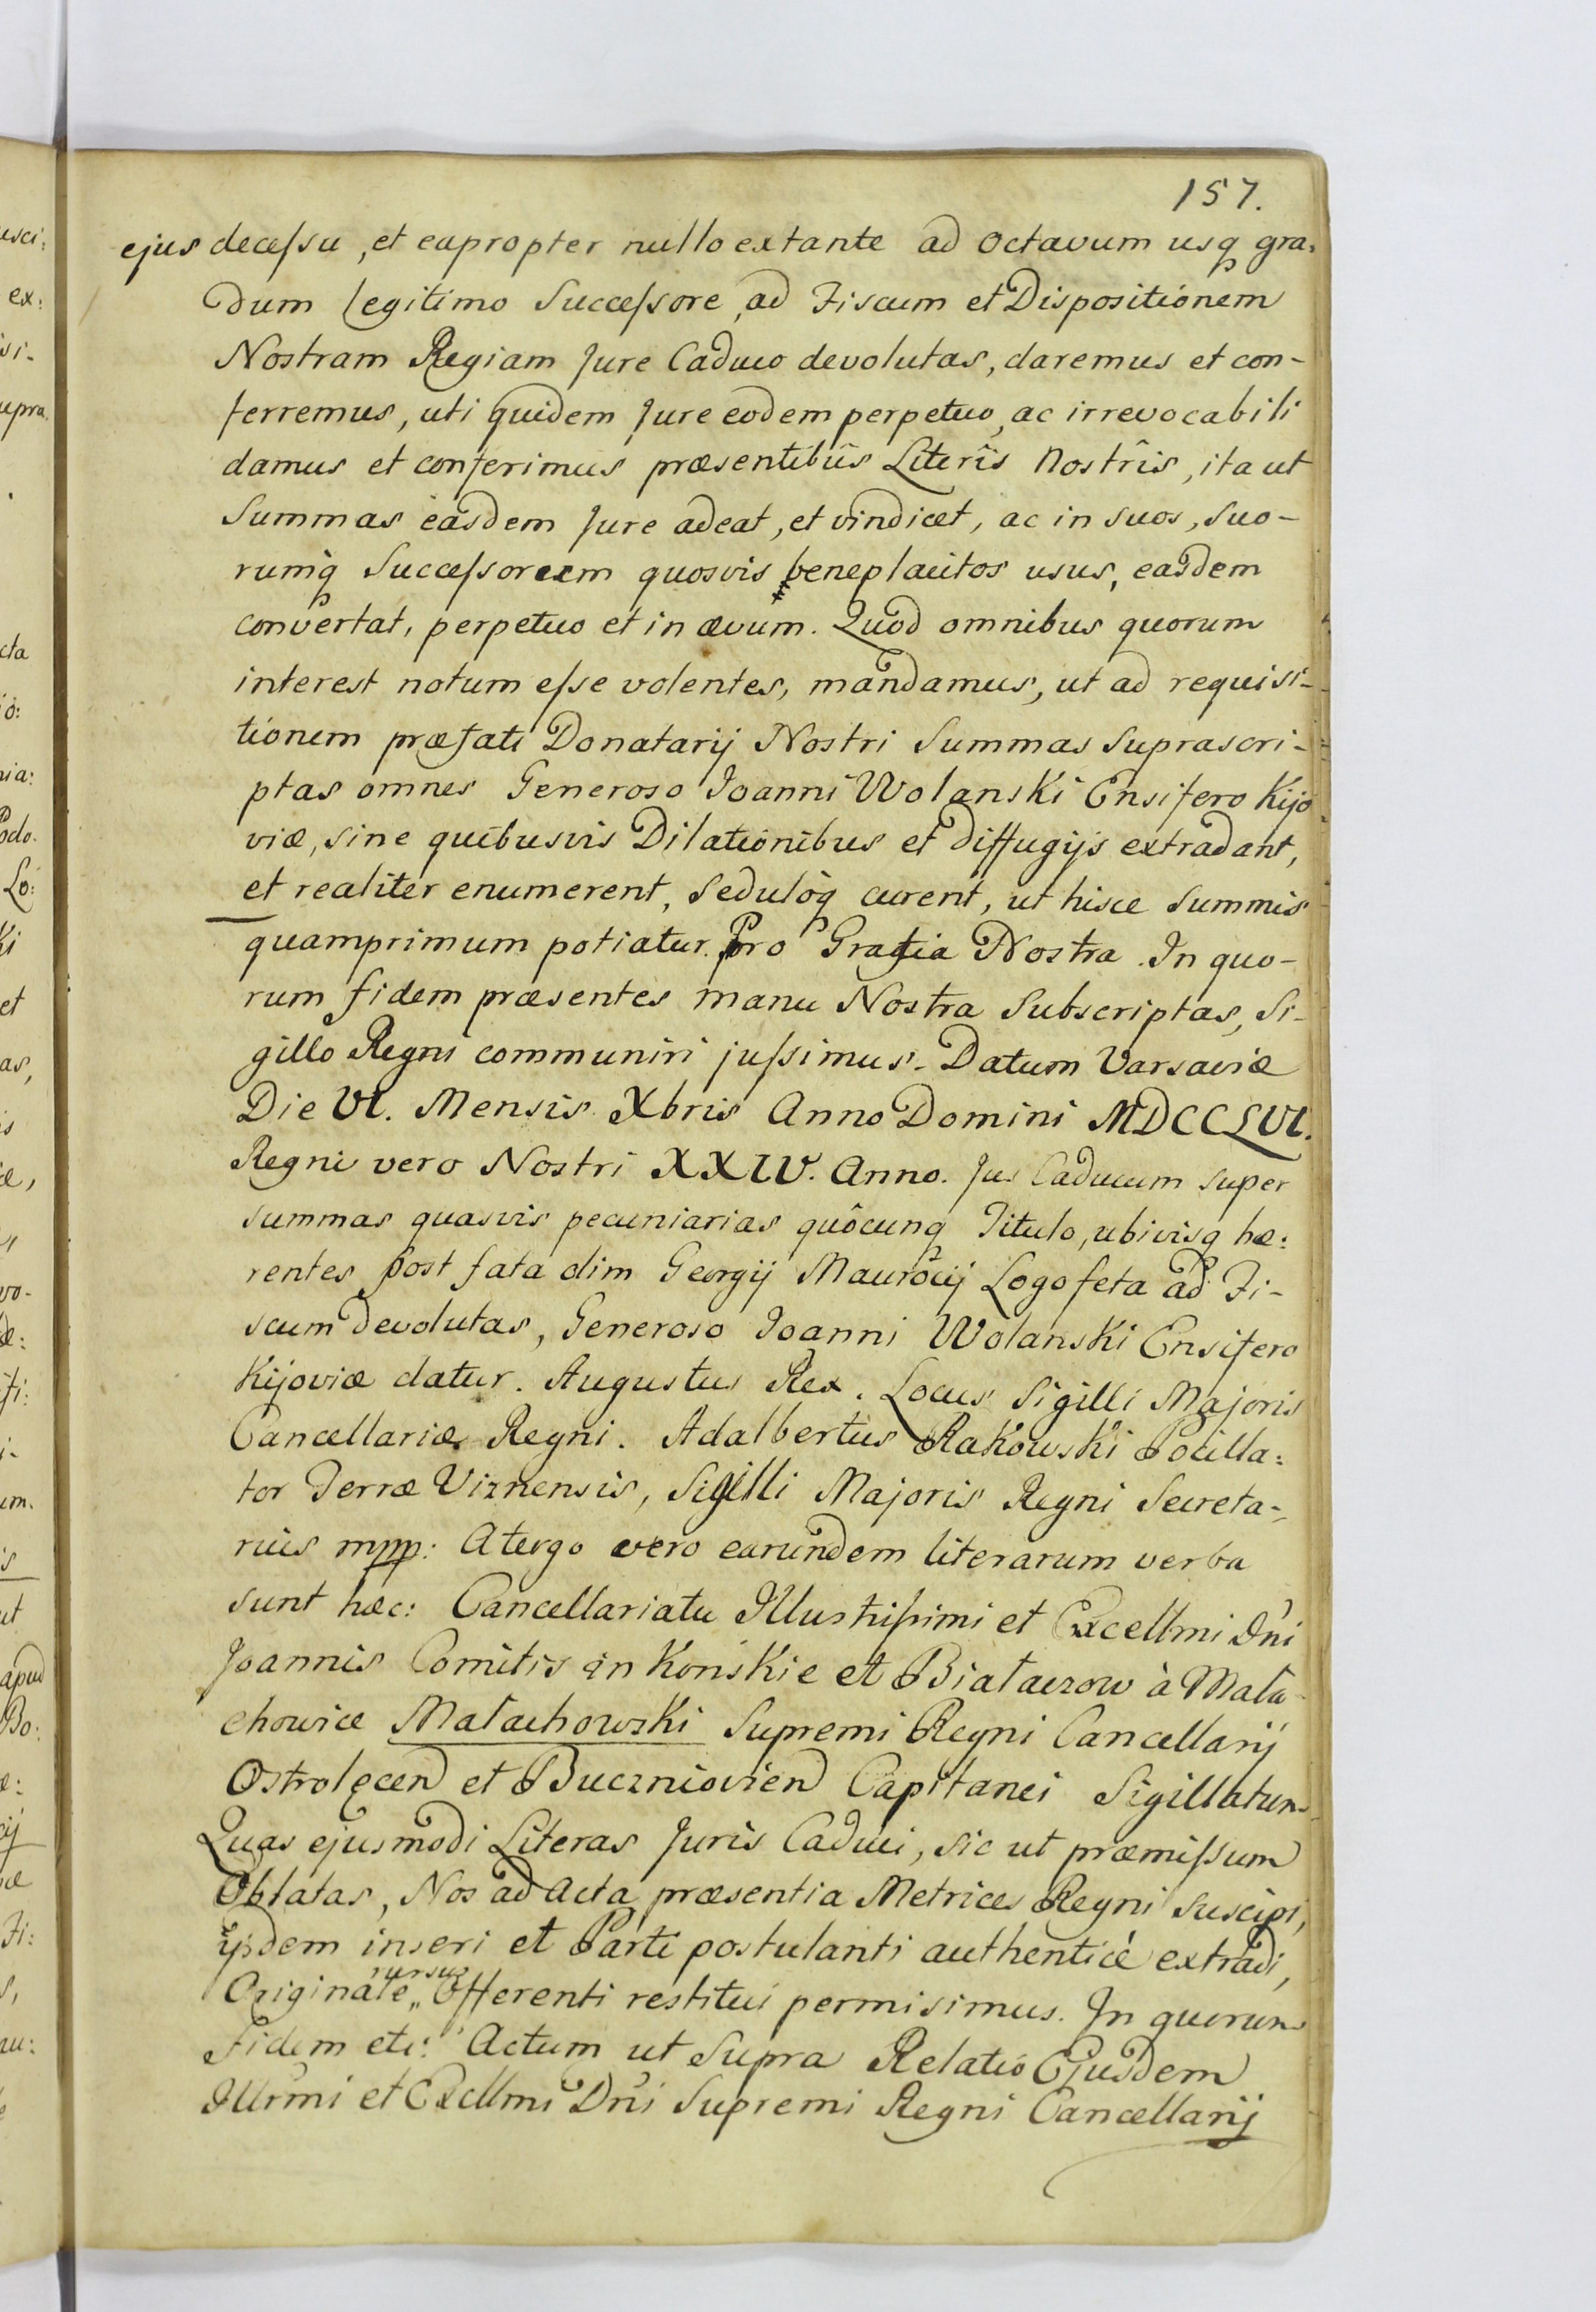 157.
ejus decessu, et eapropter nullo extante ad Octavum usq gra:
dum legitimo Successore, ad Fiscum et Dispositionem
Nostram Regiam Jure Caduco devolutas, daremus et con-
ferremus, uti quidem Jure eodem perpetuo, ac irrevocabili
damus et conferimus præsentibûs Literîs Nostrîs, ita ut
Summas easdem Jure adeat, et vindicet, ac in suos, Suo-
rumq Successorum quosvis beneplacitos usus, easdem
convertat, perpetuo et in ævum. Quod omnibus quorum
interest notum esse volentes, mandamus, ut ad requisi-
tionem præfati Donatarij Nostri Summas Suprascri-
ptas omnes Generoso Joanni Wolanski Ensifero Kijo
viæ, sine quibusvis Dilationibus et diffugijs extradant,
et realiter enumerent, Seduloq curent, ut hisce Summis
quamprimum potiatur. Pro Gratia Nostra. In quo-
rum fidem præsentes manu Nostra Subscriptas, Si-
gillo Regni communiri jussimus. Datum Varsaviæ
Die VI. Mensis Xbris Anno Domini MDCCLVI.
Regni vero Nostri XXIV. Anno. Jus Caducum super
summas quasvis pecuniarias quôcunq Titulo, ubivisq hæ:
rentes post fata olim Georgij Maurocij Logofeta ad Fi-
scum devolutas, Generoso Joanni Wolanski Ensifero
Kijoviæ datur. Augustus Rex. Locus Sigilli Majoris
Cancellariæ Regni. Adalbertus Rakowski Pocilla:
tor Terræ Viznensis, Sigilli Majoris Regni Secreta-
rius mpp: A tergo vero earundem literarum verba
sunt hæc: Cancellariatu Illustrissimi et Excellmi Dni
Joannis Comitis in Konskie et Białaczow à Mała
chowice Małachowski Supremi Regni Cancellarij
Ostrolęcen et Buczniovien Capitanei Sigillatum
Quas ejusmodi Literas Juris Caduci, sic ut præmissum
Oblatas, Nos ad Acta præsentia Metrices Regni Suscipi,
ijsdem inseri et Parti postulanti authenticè extradi,
rursus
Originale „ Offerenti restitui permisimus. In quorum
Fidem etc: Actum ut Supra Relatio Ejusdem
Illrmi et Excllmi Dni Supremi Regni Cancellarij